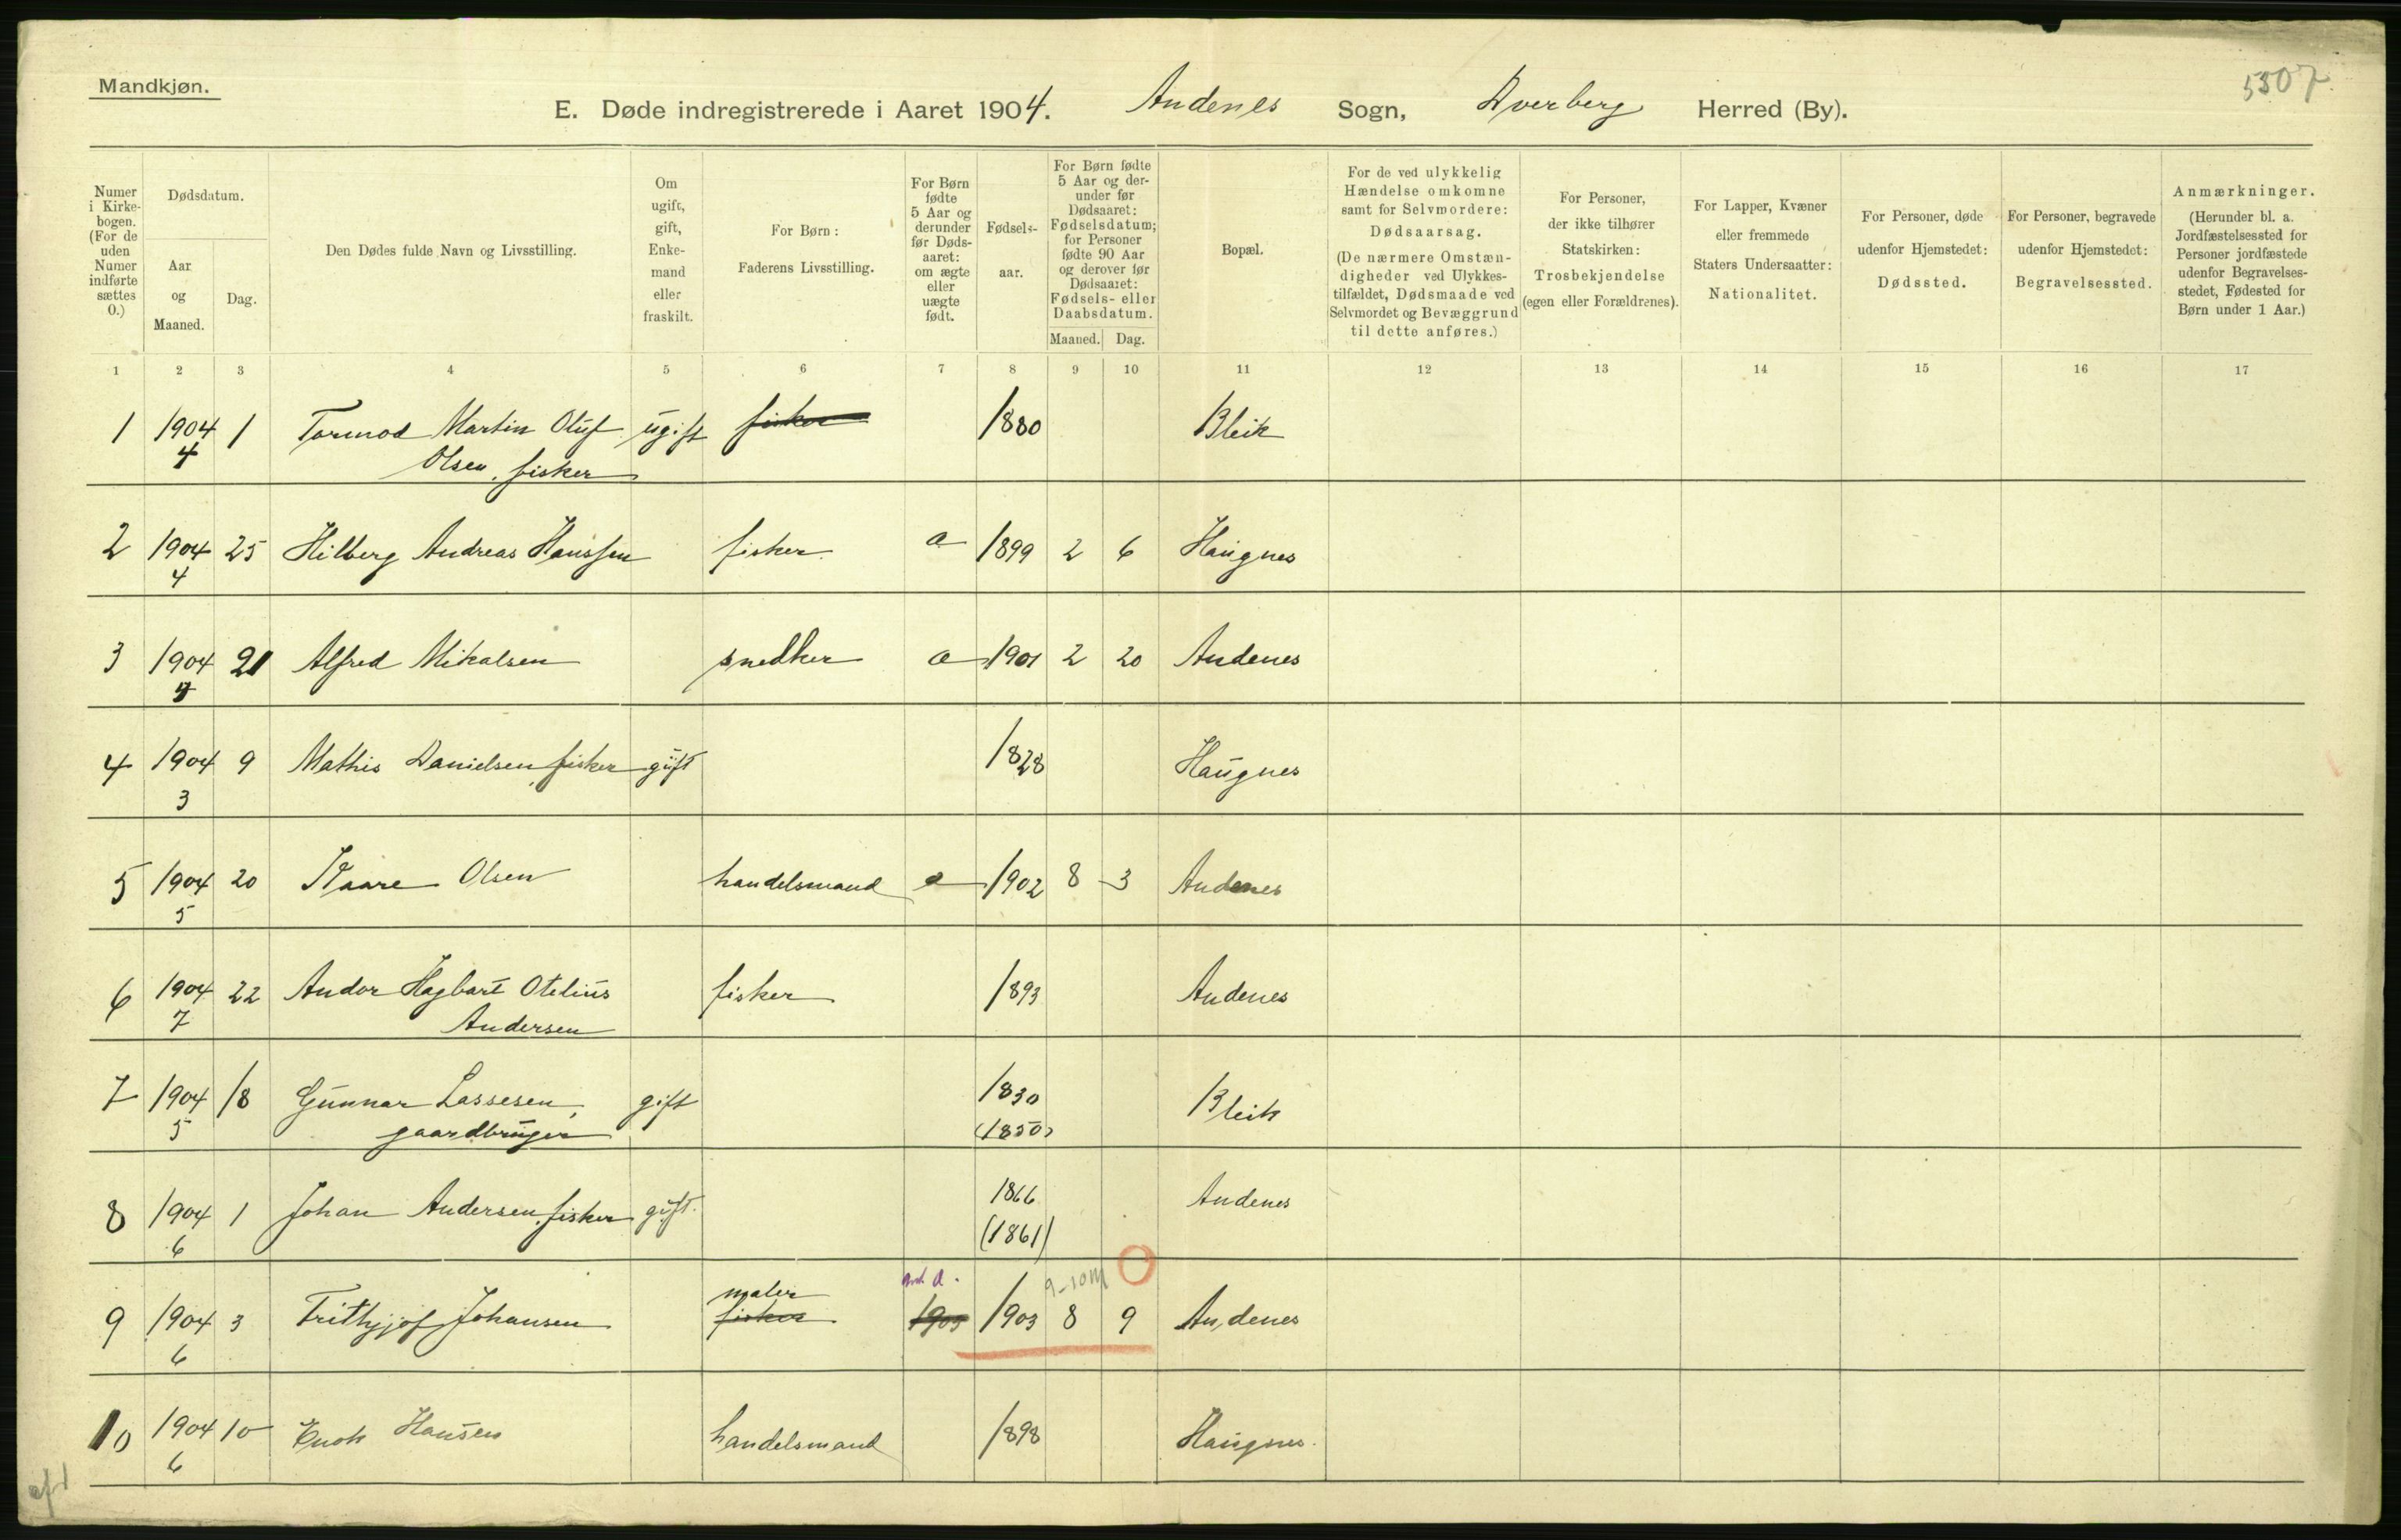 Mandkjøn.
5507
E. Døde indregistrerede i Aaret 1904. Andenes Sogn, Dverberg Herred (By).
Numer i Kirkebogen. (For de uden Numer indførte sættes 0.)
Dødsdatum.
Aar og Maaned.
Dag.
Den Dødes fulde Navn og Livsstilling.
Om ugift, gift, Enkemand eller fraskilt.
For Børn: Faderens Livsstilling.
For Børn fødte 5 Aar og derunder før Dødsaaret: om ægte eller uægte født.
Fødselsaar.
For Børn fødte 5 Aar og derunder før Dødsaaret: Fødselsdatum; for Personer fødte 90 Aar og derover før Dødsaaret: Fødsels- eller Daabsdatum.
Maaned. Dag.
Bopæl.
For de ved ulykkelig Hændelse omkomne samt for Selvmordere: Dødsaarsag. (De nærmere Omstændigheder ved Ulykkestilfældet, Dødsmaade ved Selvmordet og Bevæggrund til dette anføres.)
For Personer, der ikke tilhører Statskirken: Trosbekjendelse (egen eller Forældrenes).
For Lapper, Kvæner eller fremmede Staters Undersaatter: Nationalitet.
For Personer, døde udenfor Hjemstedet: Dødssted.
For Personer, begravede udenfor Hjemstedet: Begravelsessted.
Anmærkninger. (Herunder bl. a. Jordfæstelsessted for Personer jordfæstede udenfor Begravelsesstedet, Fødested for Børn under 1 Aar.)
1 2 3 4 5 6 7 8 9 10 11 12 13 14 15 16 17
1 1904 1 Tormod Martin Oluf ugift fisker 1880 Bleik
4 Olsen, fisker
2 1904 25 Hilberg Andreas Hanssen fisker a 1899 2 6 Haugnes
4
3 1904 21 Alfred Mikalsen snedker a 1901 2 20 Andenes
4
4 1904 9 Mathis Danielsen, fisker gift 1828 Haugnes
3
5 1904 20 Kaare Olsen handelsmand a 1902 8 3 Andenes
5
6 1904 22 Andor Hagbart Otelius fisker 1893 Andenes
7 Andersen
7 1904 18 Gunnar Lassesen, gift 1830 Bleik
5 gaardbruger (1850)
8 1904 1 Johan Andersen, fisker gift. 1866 Andenes
6 (1861)
maler a. 9-10M
9 1904 3 Frithjjof Johansen fisker 1903 1903 8 9 Andenes
6
10 1904 10 Enok Hansen handelsmand 1898 Haugnes.
6